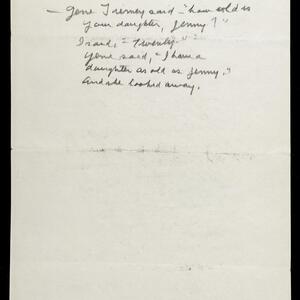 — Gene Tierney said - "how old is
your daughter, Jenny?"
I said, "Twenty."
Gene said, "I have a
daughter as old as Jenny."
And she looked away.